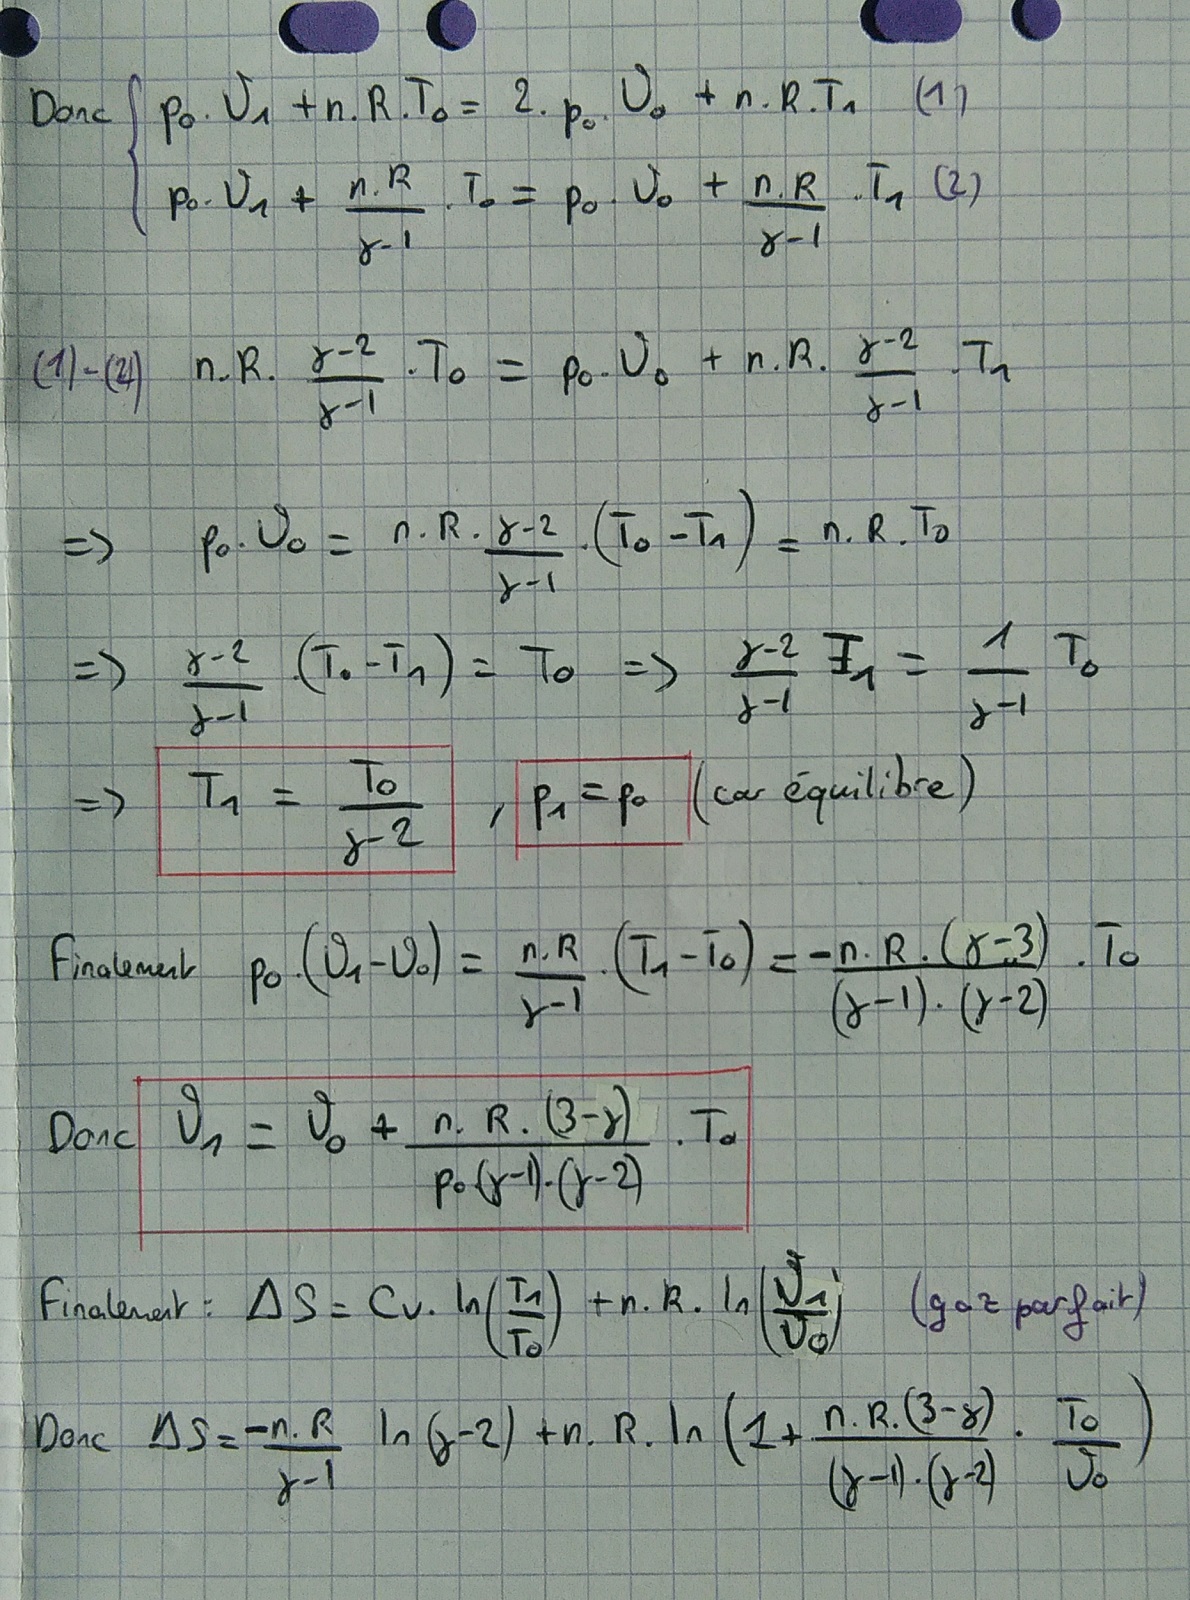 Donc { p₀.V₁ + n.R.T₀ = 2.p₀.V₀ + n.R.T₁ (1)
p₀.V₁ + n.R/(γ-1) .T₀ = p₀.V₀ + n.R/(γ-1) .T₁ (2)
(1)-(2) n.R. (γ-2)/(γ-1) .T₀ = p₀.V₀ + n.R. (γ-2)/(γ-1) .T₁
=> p₀.V₀ = n.R. (γ-2)/(γ-1) .(T₀-T₁) = n.R.T₀
=> (γ-2)/(γ-1) .(T₀-T₁) = T₀ => (γ-2)/(γ-1) T₁ = 1/(γ-1) T₀
=> T₁ = T₀/(γ-2) , p₁ = p₀ (car équilibre)
Finalement p₀.(V₁-V₀) = n.R/(γ-1) .(T₁-T₀) = -n.R.(γ-3)/((γ-1).(γ-2)) .T₀
Donc V₁ = V₀ + n.R.(3-γ)/(p₀.(γ-1).(γ-2)) .T₀
Finalement : ΔS = Cv. ln(T₁/T₀) + n.R. ln(V₁/V₀) (gaz parfait)
Donc ΔS = -n.R/(γ-1) ln(γ-2) + n.R. ln(1 + n.R.(3-γ)/((γ-1).(γ-2)) . T₀/V₀)